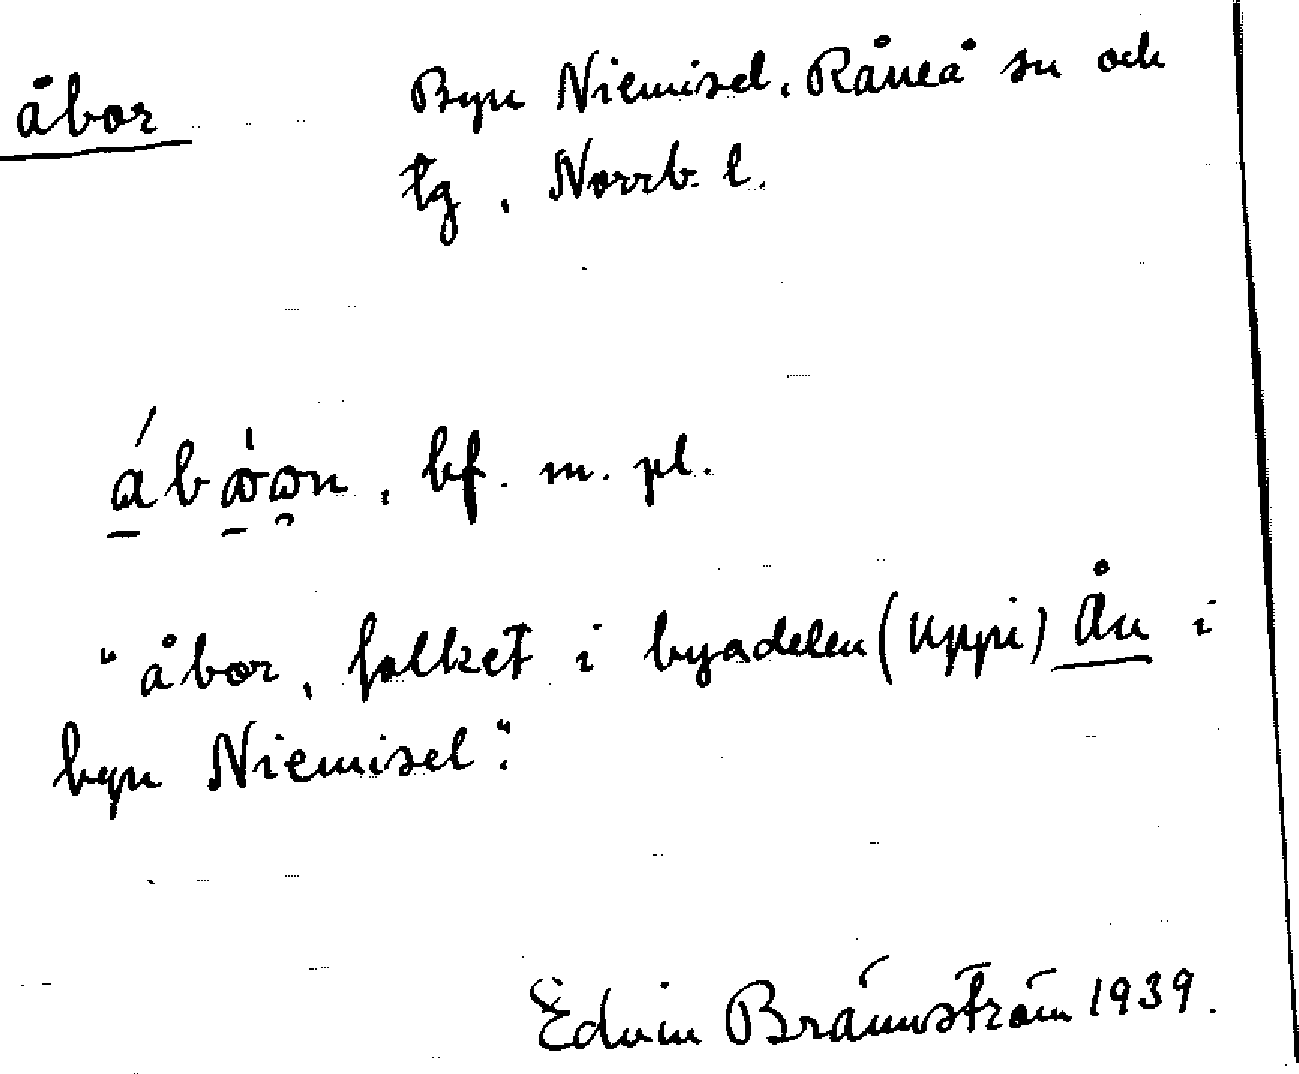 åbor Byn Niemisel, Råneå sn och
tg, Norrb. l.
bf. m. pl.
"åbor, folket i byadelen (Uppi) Ån i
byn Niemisel".
Edvin Brännström 1939.